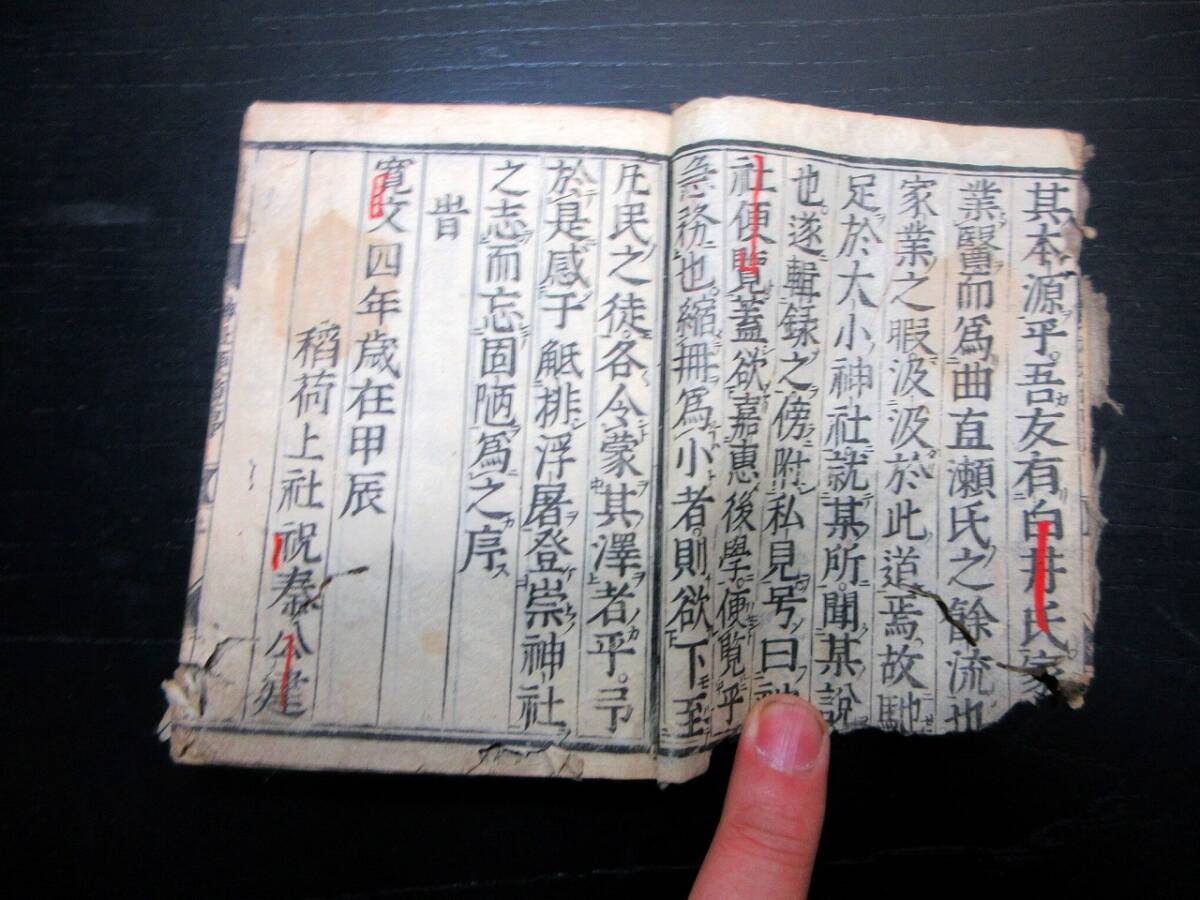 其本源乎。吾友有白井氏家
業醫而爲曲直瀬氏之餘流也
家業之暇汲汲於此道焉故馳
足於大小神社說某所聞某說
也遂輯録之傍附私見号曰神
社便覧蓋欲嘉惠後學。便覧乎
急務也。縮冊爲小者。則欲下至
凡民之徒。各令蒙其澤者乎。予
於是感于觝排浮屠登崇神社
之志而忘固陋爲之序
旹
寛文四年歳在甲辰
稻荷上社祝秦公建